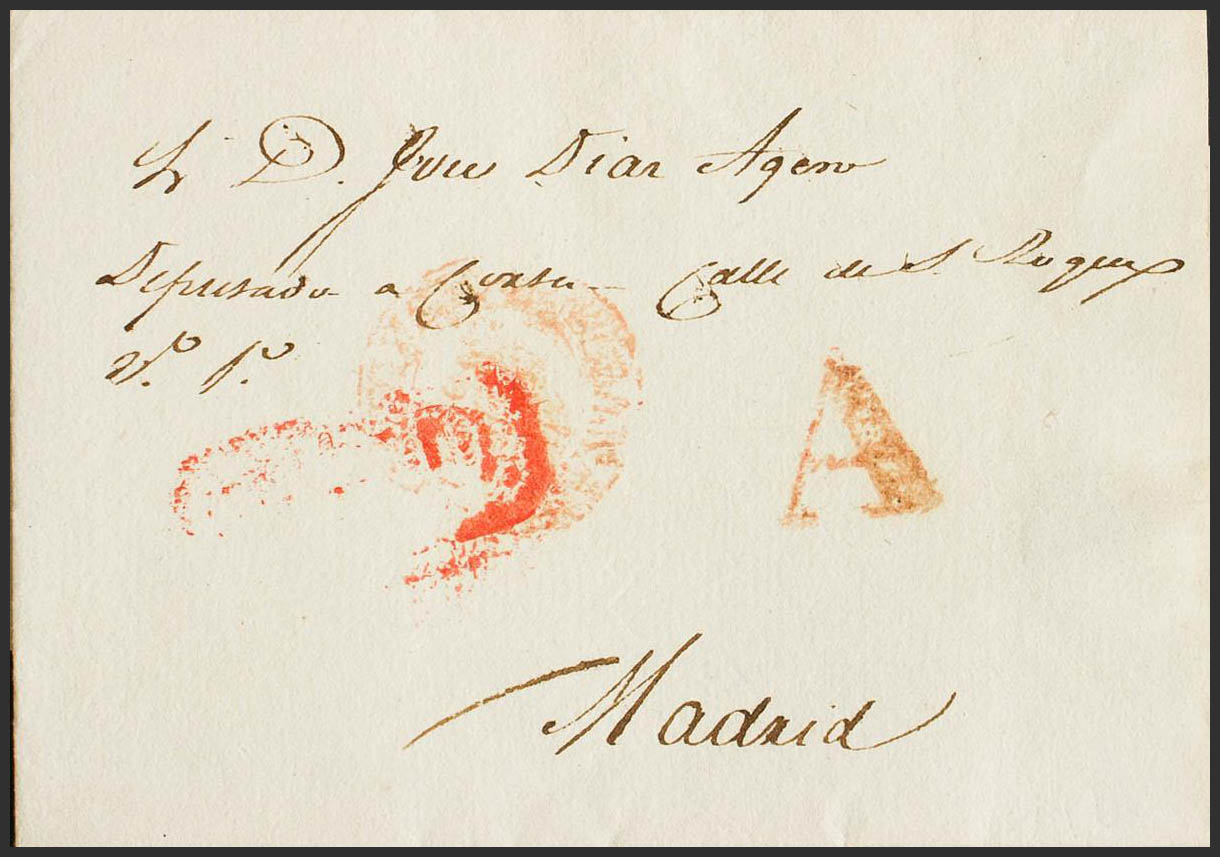 Sr D. Jose Diaz Agero
Diputado a Cortes Calle de S. Roque
No. 1o.
A
Madrid